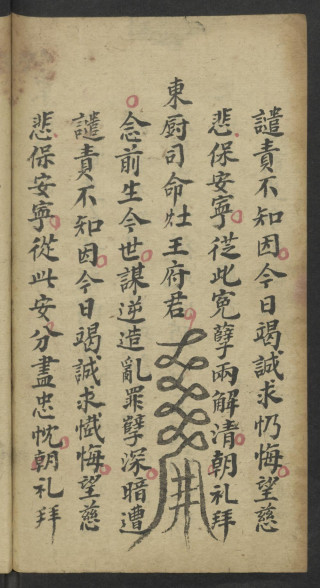 譴責不知因今日竭誠求忏悔望慈
悲保安寧從此寃孽兩解清朝礼拜
東厨司命灶王府君
念前生今世謀逆造亂罪孽深暗遭
譴責不知因今日竭誠求懺悔望慈
悲保安寧從此安分盡忠忱朝礼拜